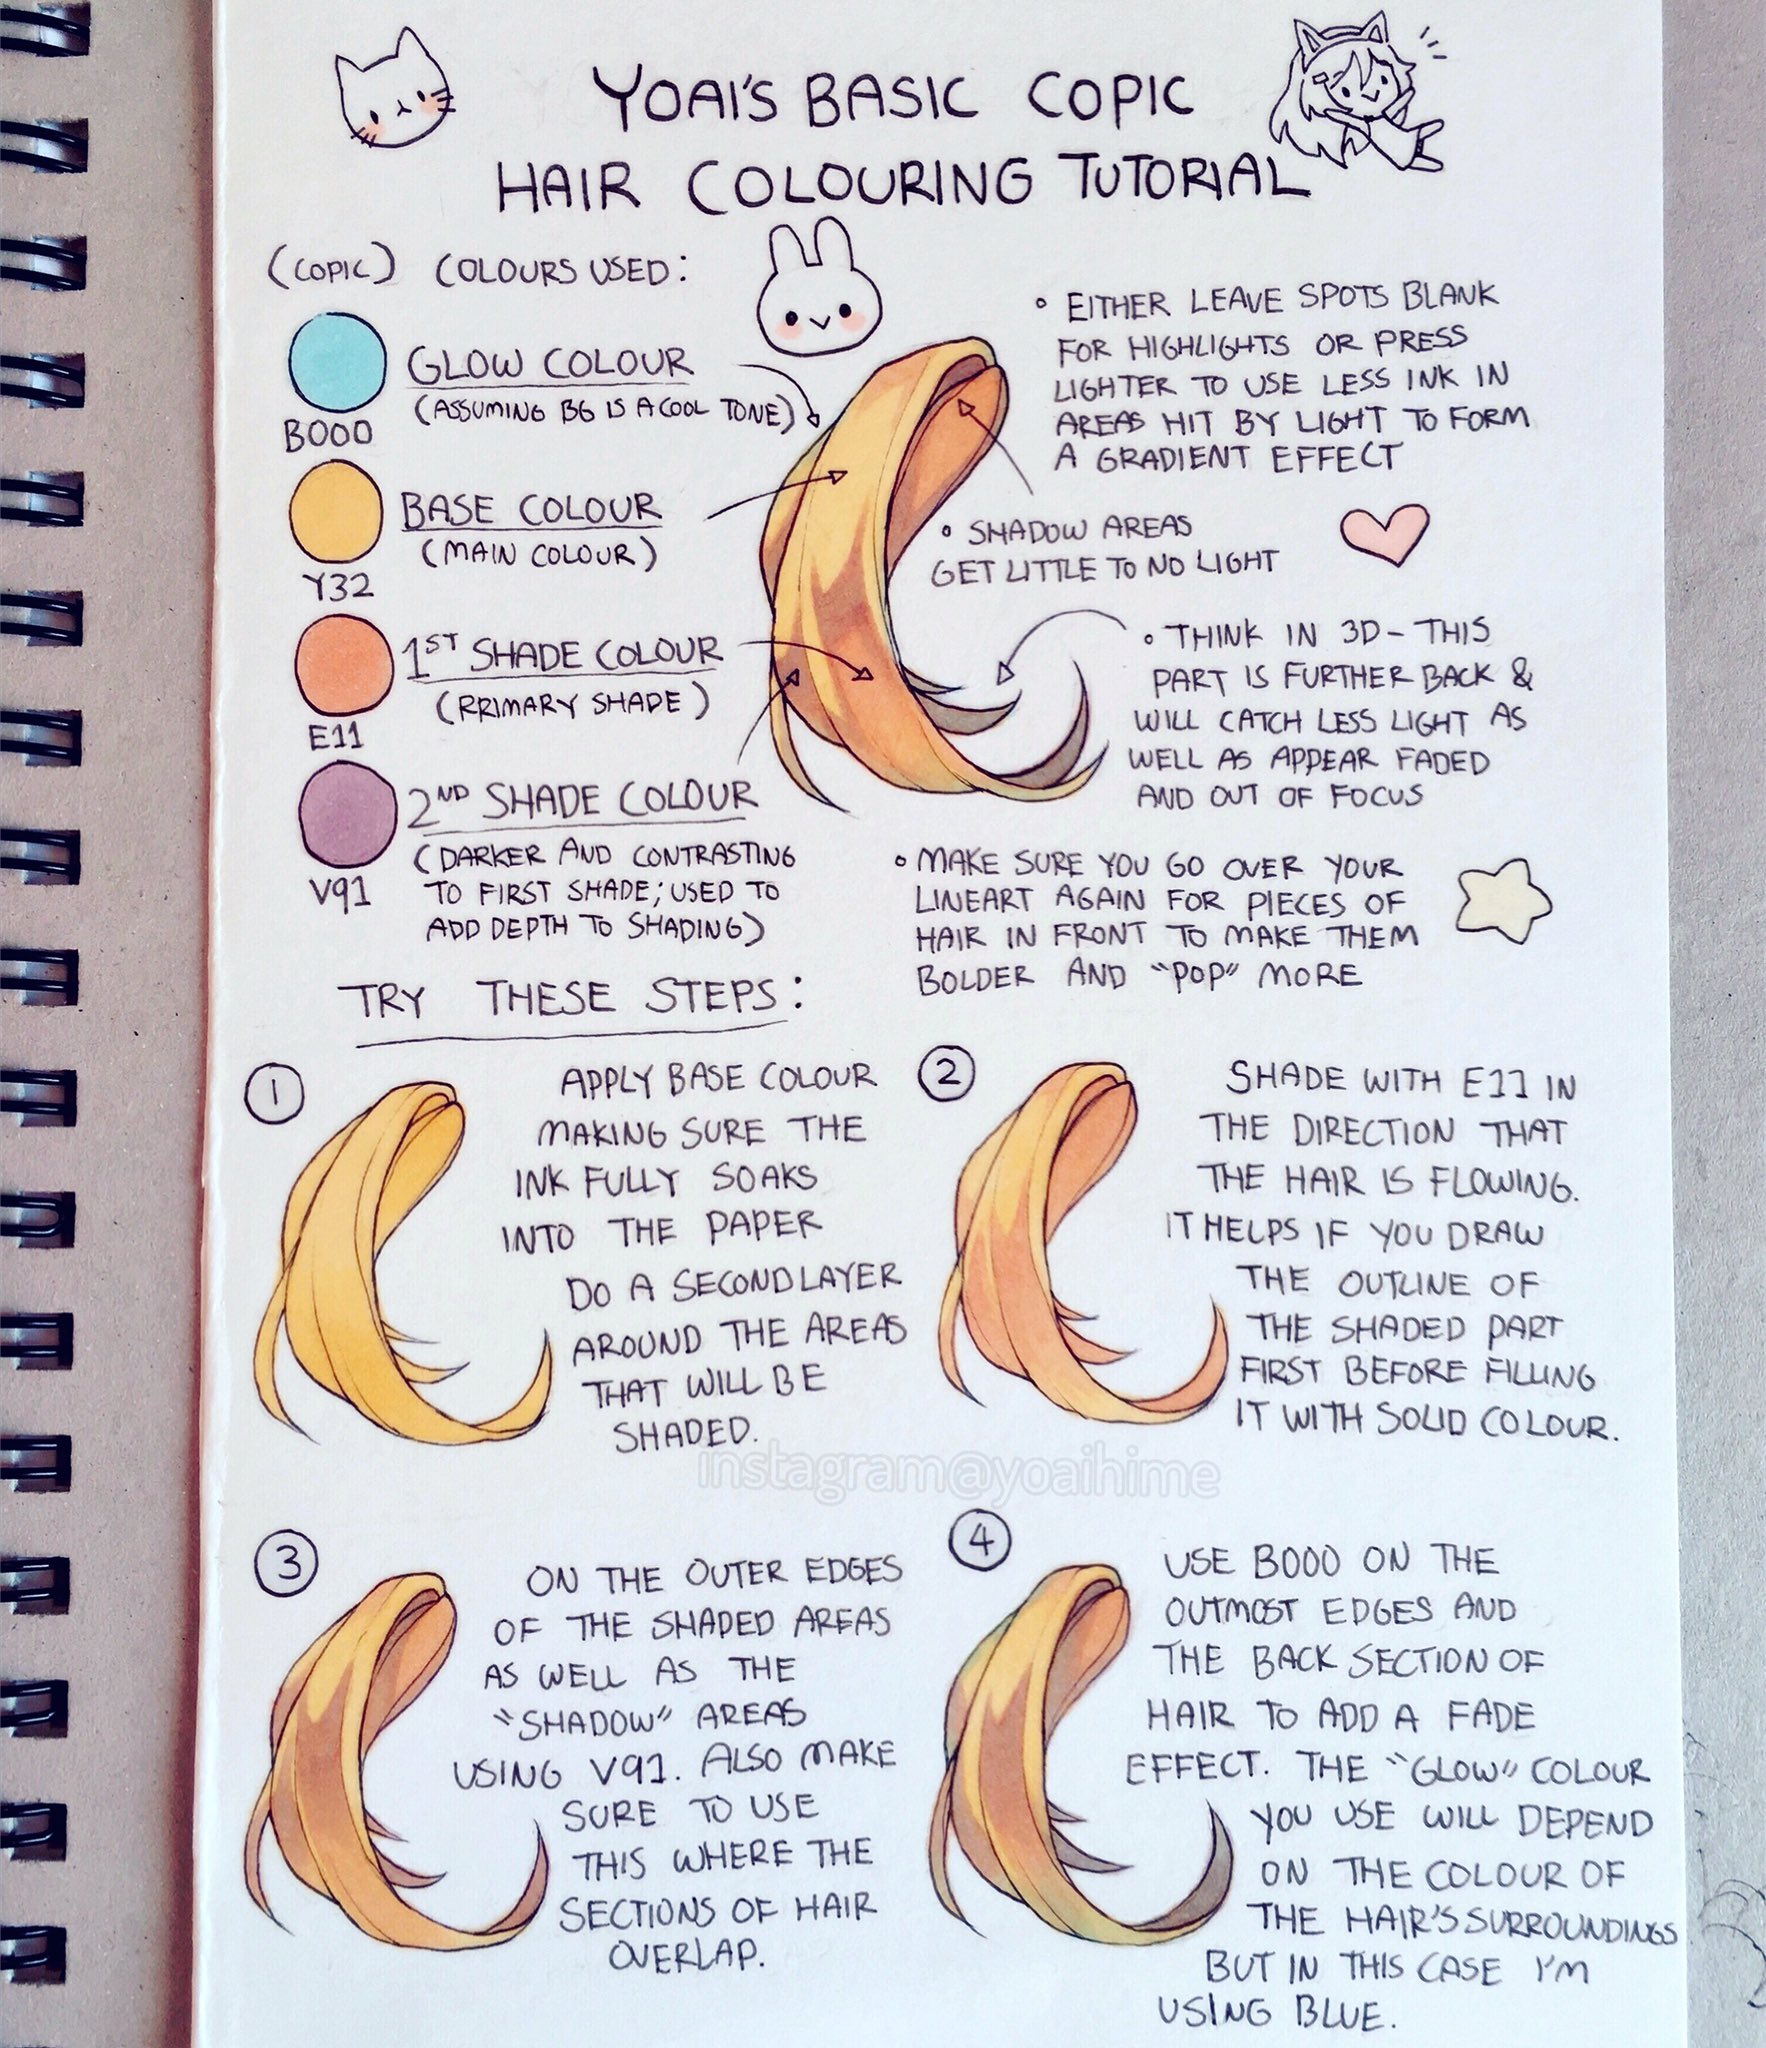 YOAI'S BASIC COPIC
HAIR COLOURING TUTORIAL
(COPIC) COLOURS USED:
B000
GLOW COLOUR
(ASSUMING BG IS A COOL TONE)
Y32
BASE COLOUR
(MAIN COLOUR)
E11
1ST SHADE COLOUR
(RRIMARY SHADE)
V91
2ND SHADE COLOUR
(DARKER AND CONTRASTING
TO FIRST SHADE; USED TO
ADD DEPTH TO SHADING)
• EITHER LEAVE SPOTS BLANK
FOR HIGHLIGHTS OR PRESS
LIGHTER TO USE LESS INK IN
AREAS HIT BY LIGHT TO FORM
A GRADIENT EFFECT
• SHADOW AREAS
GET LITTLE TO NO LIGHT
• THINK IN 3D - THIS
PART IS FURTHER BACK &
WILL CATCH LESS LIGHT AS
WELL AS APPEAR FADED
AND OUT OF FOCUS
• MAKE SURE YOU GO OVER YOUR
LINEART AGAIN FOR PIECES OF
HAIR IN FRONT TO MAKE THEM
BOLDER AND "POP" MORE
TRY THESE STEPS:
1
APPLY BASE COLOUR
MAKING SURE THE
INK FULLY SOAKS
INTO THE PAPER
DO A SECOND LAYER
AROUND THE AREAS
THAT WILL BE
SHADED.
2
SHADE WITH E11 IN
THE DIRECTION THAT
THE HAIR IS FLOWING.
IT HELPS IF YOU DRAW
THE OUTLINE OF
THE SHADED PART
FIRST BEFORE FILLING
IT WITH SOLID COLOUR.
instagram@yoaihime
3
ON THE OUTER EDGES
OF THE SHADED AREAS
AS WELL AS THE
"SHADOW" AREAS
USING V91. ALSO MAKE
SURE TO USE
THIS WHERE THE
SECTIONS OF HAIR
OVERLAP.
4
USE B000 ON THE
OUTMOST EDGES AND
THE BACK SECTION OF
HAIR TO ADD A FADE
EFFECT. THE "GLOW" COLOUR
YOU USE WILL DEPEND
ON THE COLOUR OF
THE HAIR'S SURROUNDINGS
BUT IN THIS CASE I'M
USING BLUE.